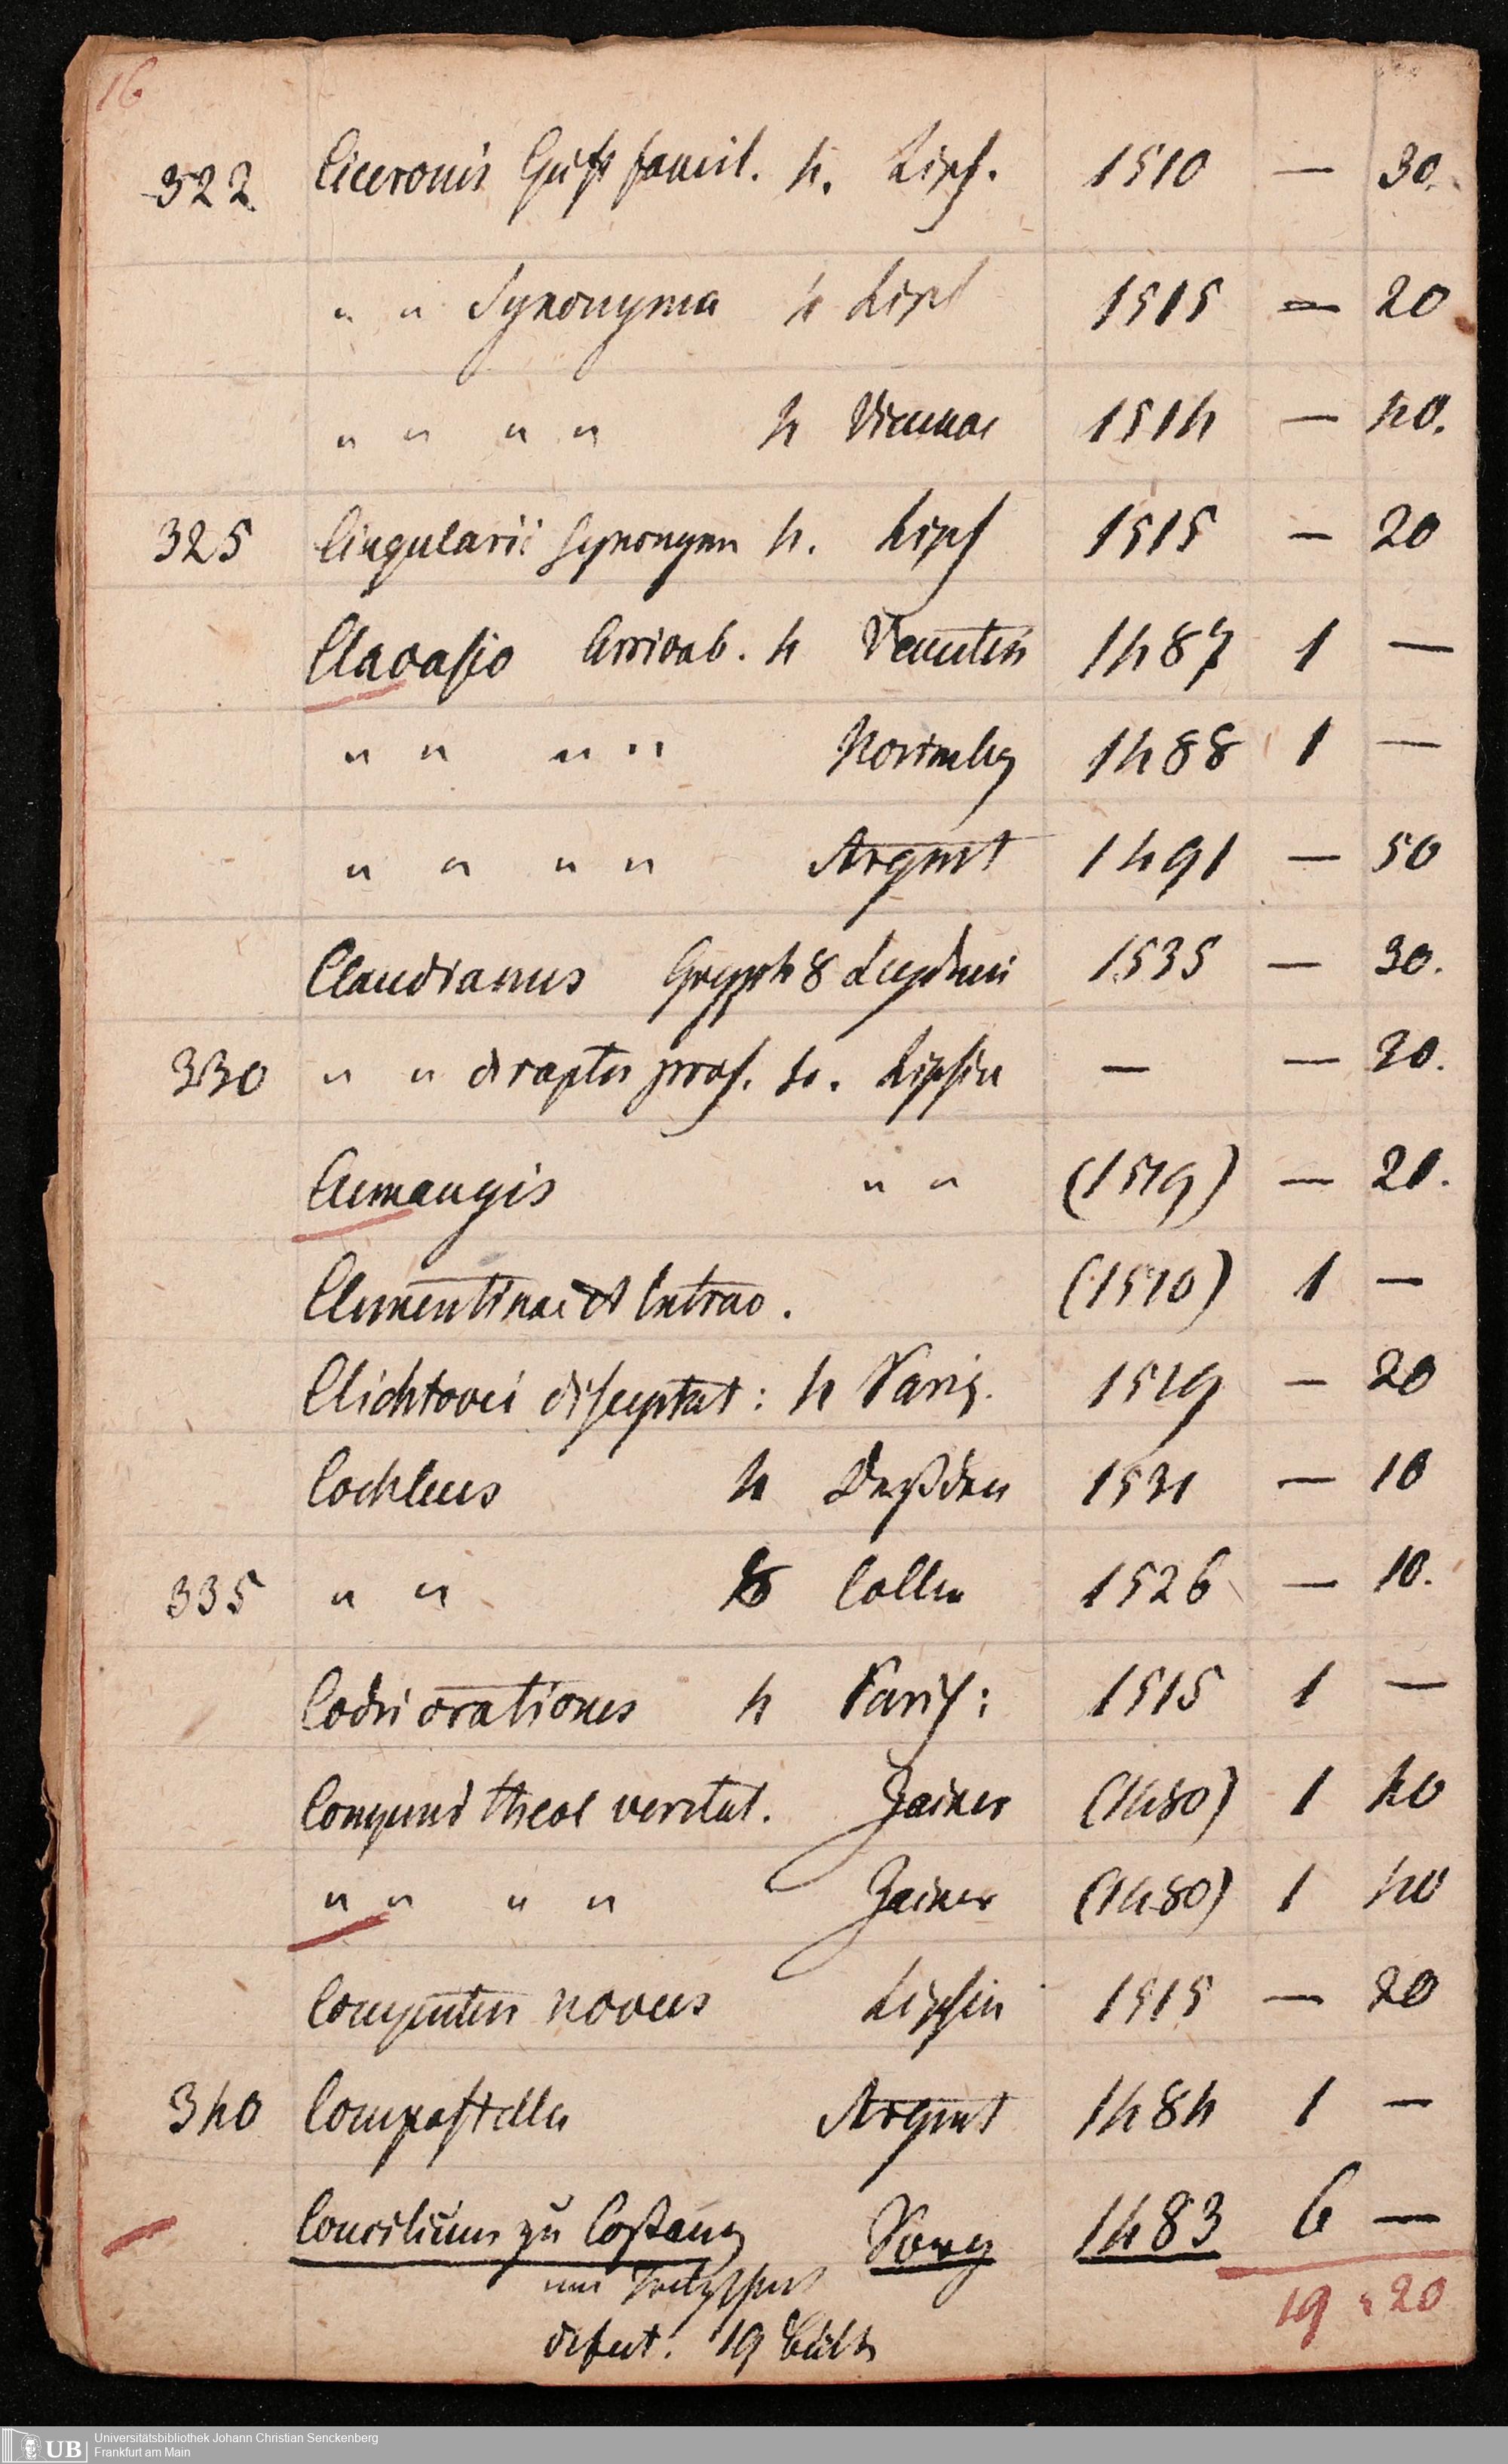 16
322 Ciceronis Epist famil. 4. Lips. 1510 — 30.
" " Synonyma 4 Lips 1515 — 20
" " " " 4 Viennae 1514 — 40.
325 Cingularii Synonym 4. Lips 1515 — 20
Clavasio Arrivab. 4 Venetiis 1487 1 —
" " " " Norimbg 1488 1 —
" " " " Argent 1491 — 50
Claudianus Gryph 8 Lugduni 1535 — 30.
330 " " de raptu pros. 4. Lipsiae — — 20.
Clemangis " " (1519) — 20.
Clementinae et Extrav. (1510) 1 —
Clichtovei disceptat: 4 Paris. 1519 — 20
Cochleus 4 Dreßden 1531 — 10
335 " " 8 Colln 1526 — 10.
Codri orationes 4 Paris: 1515 1 —
Compend theol veritat. Zainer (1480) 1 40
" " " " Zainer (1480) 1 40
Computus novus Lipsiae 1515 — 20
340 Compostella Argent 1484 1 —
Concilium zu Costanz Sorg 1483 6 —
19 " 20
defect. 19 Bildr